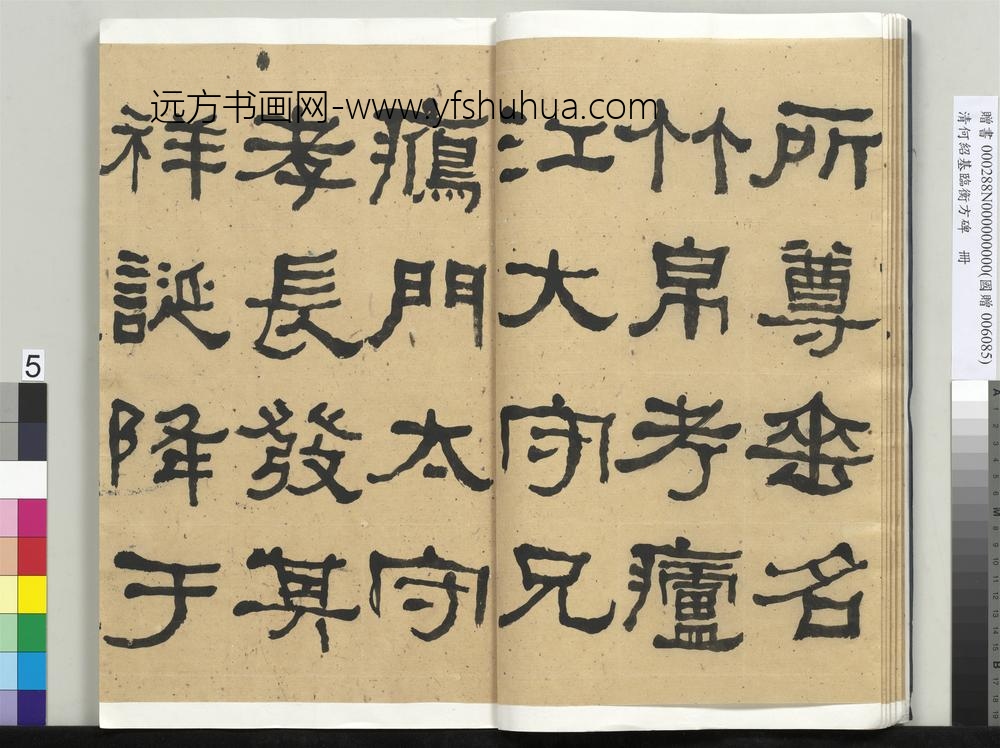 远方书画网-www.yfshuhua.com
所尊垂名
竹帛考廬
江大守兄
鴈門太守
孝長發其
祥誕降于
贈書 000288N000000000(國贈 006085)
清何紹基臨衡方碑 冊
5